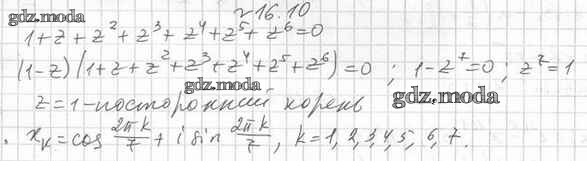 №16.10
gdz.moda
1+z+z²+z³+z⁴+z⁵+z⁶=0
(1-z)(1+z+z²+z³+z⁴+z⁵+z⁶)=0 ; 1-z⁷=0 ; z⁷=1
gdz.moda
z=1-посторонний корень
gdz.moda
x_k=cos 2πk/7 + i sin 2πk/7, k=1, 2, 3, 4, 5, 6, 7.